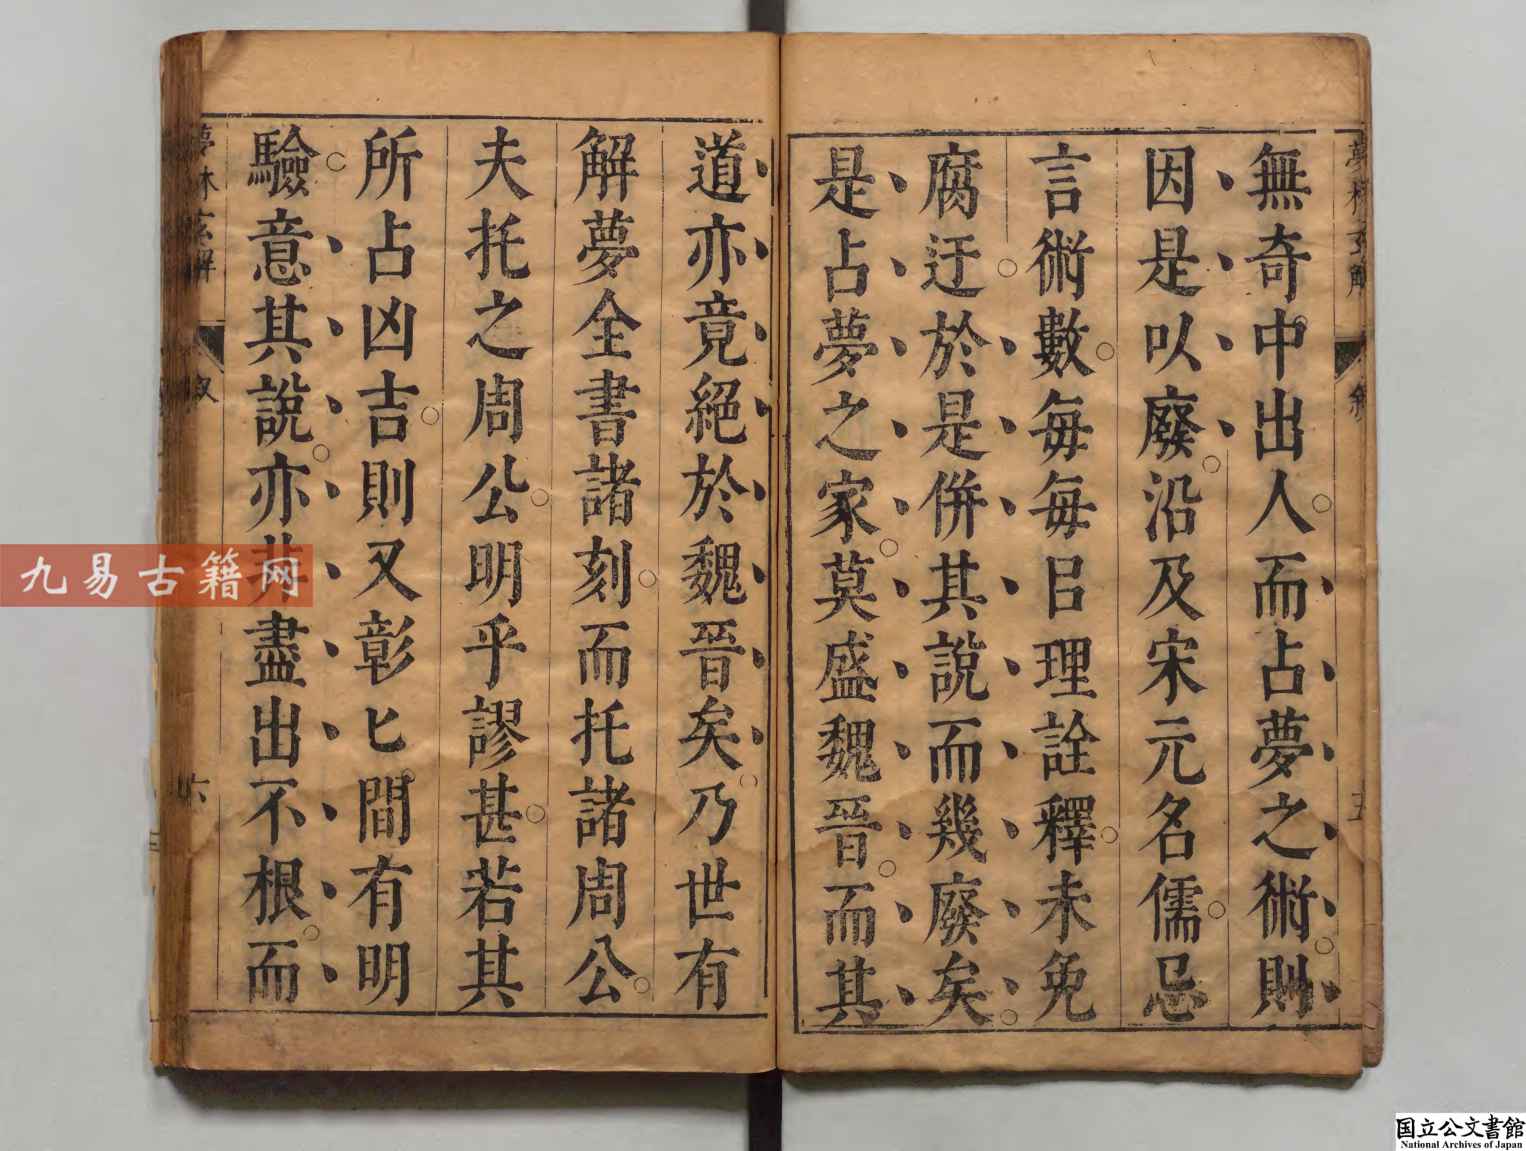 無奇中出人而占夢之術則
因是以廢沿及宋元名儒忌
言術數每每曰理詮釋未免
腐迂於是併其說而幾廢矣
是占夢之家莫盛魏晉而其
道亦竟絕於魏晉矣乃世有
解夢全書諸刻而托諸周公
夫托之周公明乎謬甚若其
所占凶吉則又彰匕間有明
驗意其說亦非盡出不根而
夢林玄解
叙
六
五
九易古籍网
国立公文書館
National Archives of Japan